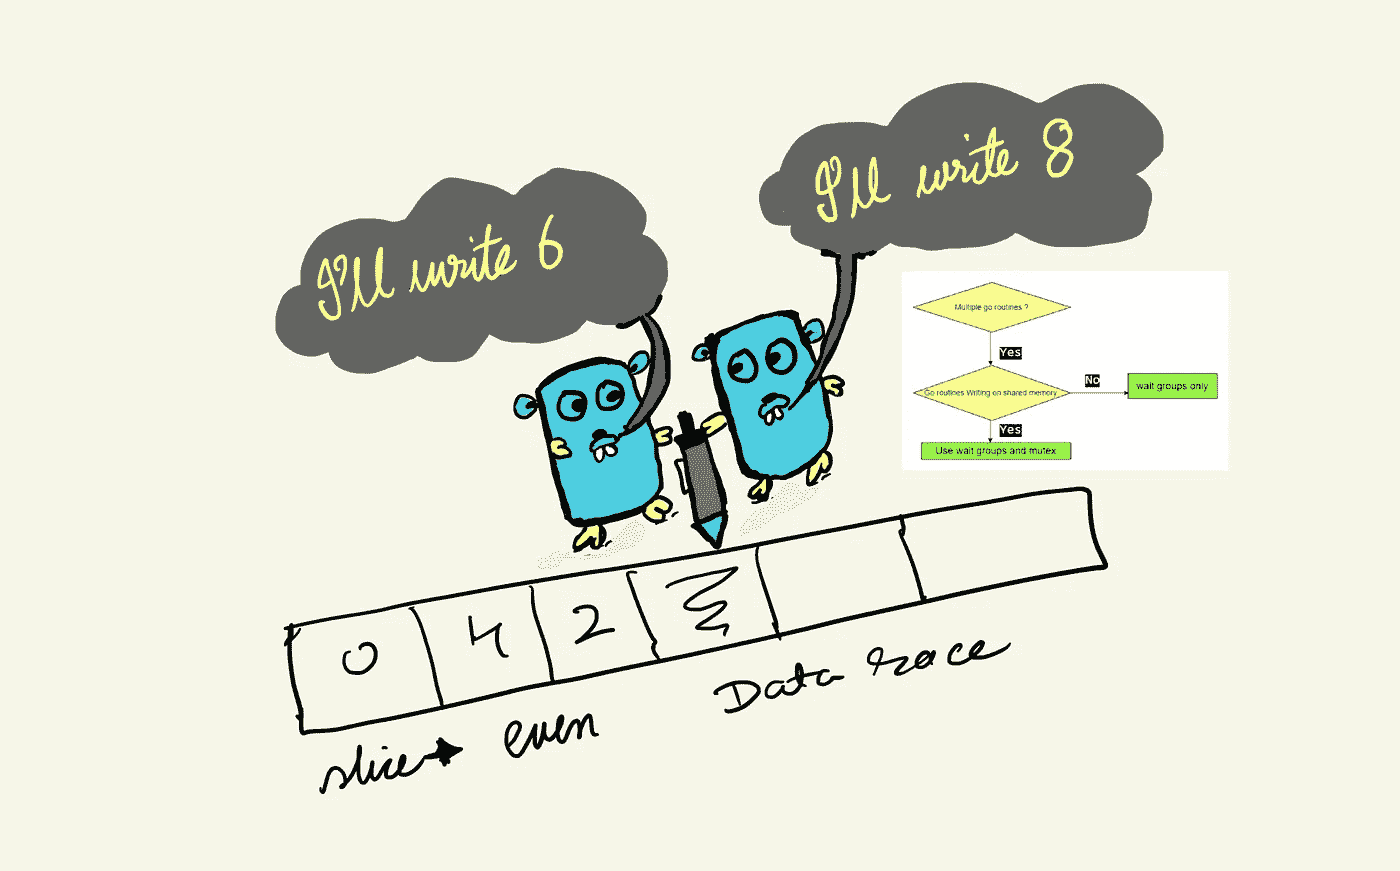 I'll write 6
I'll write 8
Multiple go routines ?
Yes
Go routines Writing on shared memory
No
wait groups only
Yes
Use wait groups and mutex
0 4 2
slice → even
Data race